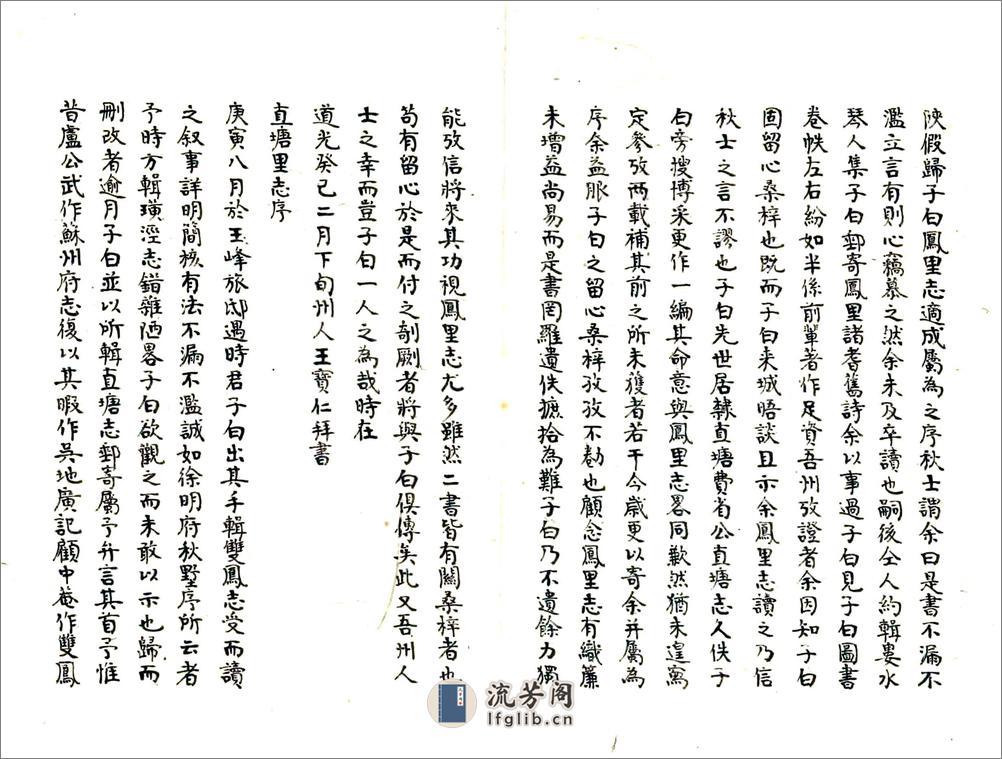 陝假歸子白鳳里志適成屬為之序秋士謂余曰是書不漏不
濫立言有則心竊慕之然余未及卒讀也嗣後仝人約輯婁水
琴人集子白郵寄鳳里諸耆舊詩余以事過子白見子白圖書
卷帙左右紛如半係前輩著作足資吾州攷證者余因知子白
固留心桑梓也既而子白来城晤談且示余鳳里志讀之乃信
秋士之言不謬也子白先世居隸直塘費省公直塘志久佚子
白旁搜博采更作一編其命意與鳳里志畧同歉然猶未遑寫
定參攷兩載補其前之所未獲者若干今歲更以寄余并屬為
序余益服子白之留心桑梓孜孜不勌也顧念鳳里志有織簾
未增益尚易而是書罔羅遺佚摭拾為難子白乃不遺餘力獨
能攷信將來其功視鳳里志尤多雖然二書皆有關桑梓者也
茍有留心於是而付之剞劂者將與子白俱傳矣此又吾州人
士之幸而豈子白一人之為哉時在
道光癸巳二月下旬州人王寶仁拜書
直塘里志序
庚寅八月於玉峰旅邸遇時君子白出其手輯雙鳳志受而讀
之叙事詳明簡核有法不漏不濫誠如徐明府秋墅序所云者
予時方輯璜涇志錯雜陋畧子白欲觀之而未敢以示也歸而
刪改者逾月子白並以所輯直塘志郵寄屬予弁言其首予惟
昔盧公武作蘇州府志復以其暇作吳地廣記顧中菴作雙鳳
流芳阁
lfglib.cn